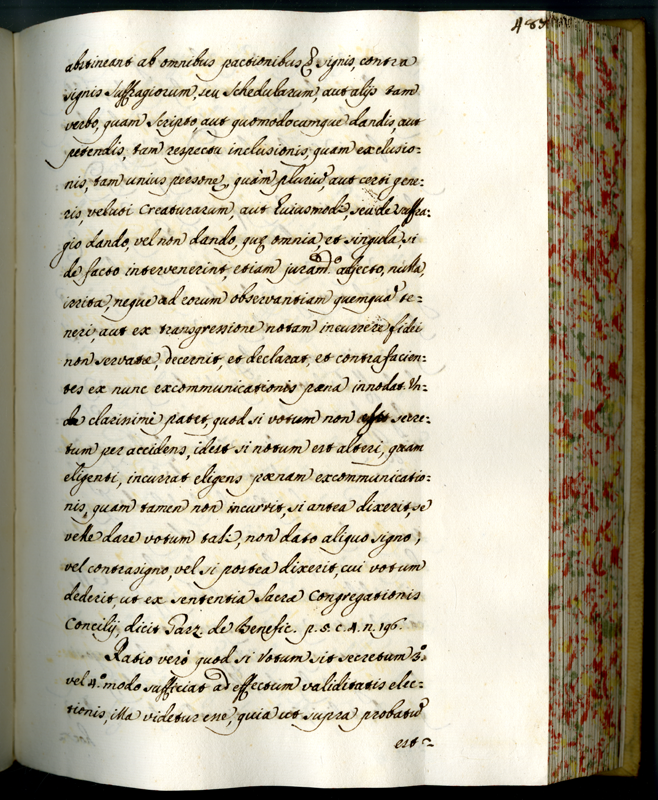 abstineant ab omnibus pactionibus & signis, contra
signis suffragiorum, seu schedularum, aut alijs tam
verbo, quam scripto, aut quomodocumque dandis, aut
petendis, tam respectu inclusionis, quam exclusio=
nis, tam unius persone, quàm pluriũ aut certi gene=
ris, veluti Creaturarum, aut huiusmodi, seu de suffra=
gio dando, vel non dando, quę omnia, et singula, si
de facto intervenerint, etiam juramto. adjecto, nulla,
irrita, neque ad eorum observantiam quemquã te=
neri, aut ex transgressione notam incurrere fidei
non servatæ, decernit, et declarat, et contra facien=
tes ex nunc excommunicationis pæna innodat. Vn=
de clarissimè patet, quod si votum non secre=
tum per accidens, idest si notum est alteri, quam
eligenti, incurrat eligens pænam excommunicatio=
nis, quam tamen non incurrit, si antea dixerit, se
velle dare votum tali, non dato aliquo signo,
vel contrasigno, vel si postea dixerit, cui votum
dederit, ut ex sententia Sacræ Congregationis
Concilij, dicit Garz. de Benefic. p. 5. c. 4. n. 196.
Ratio verò quod si Votum sit secretum 3.º
vel 4.º modo sufficiat ad effectum validitatis elec=
tionis, illa videtur esse, quia ut supra probatũ
est